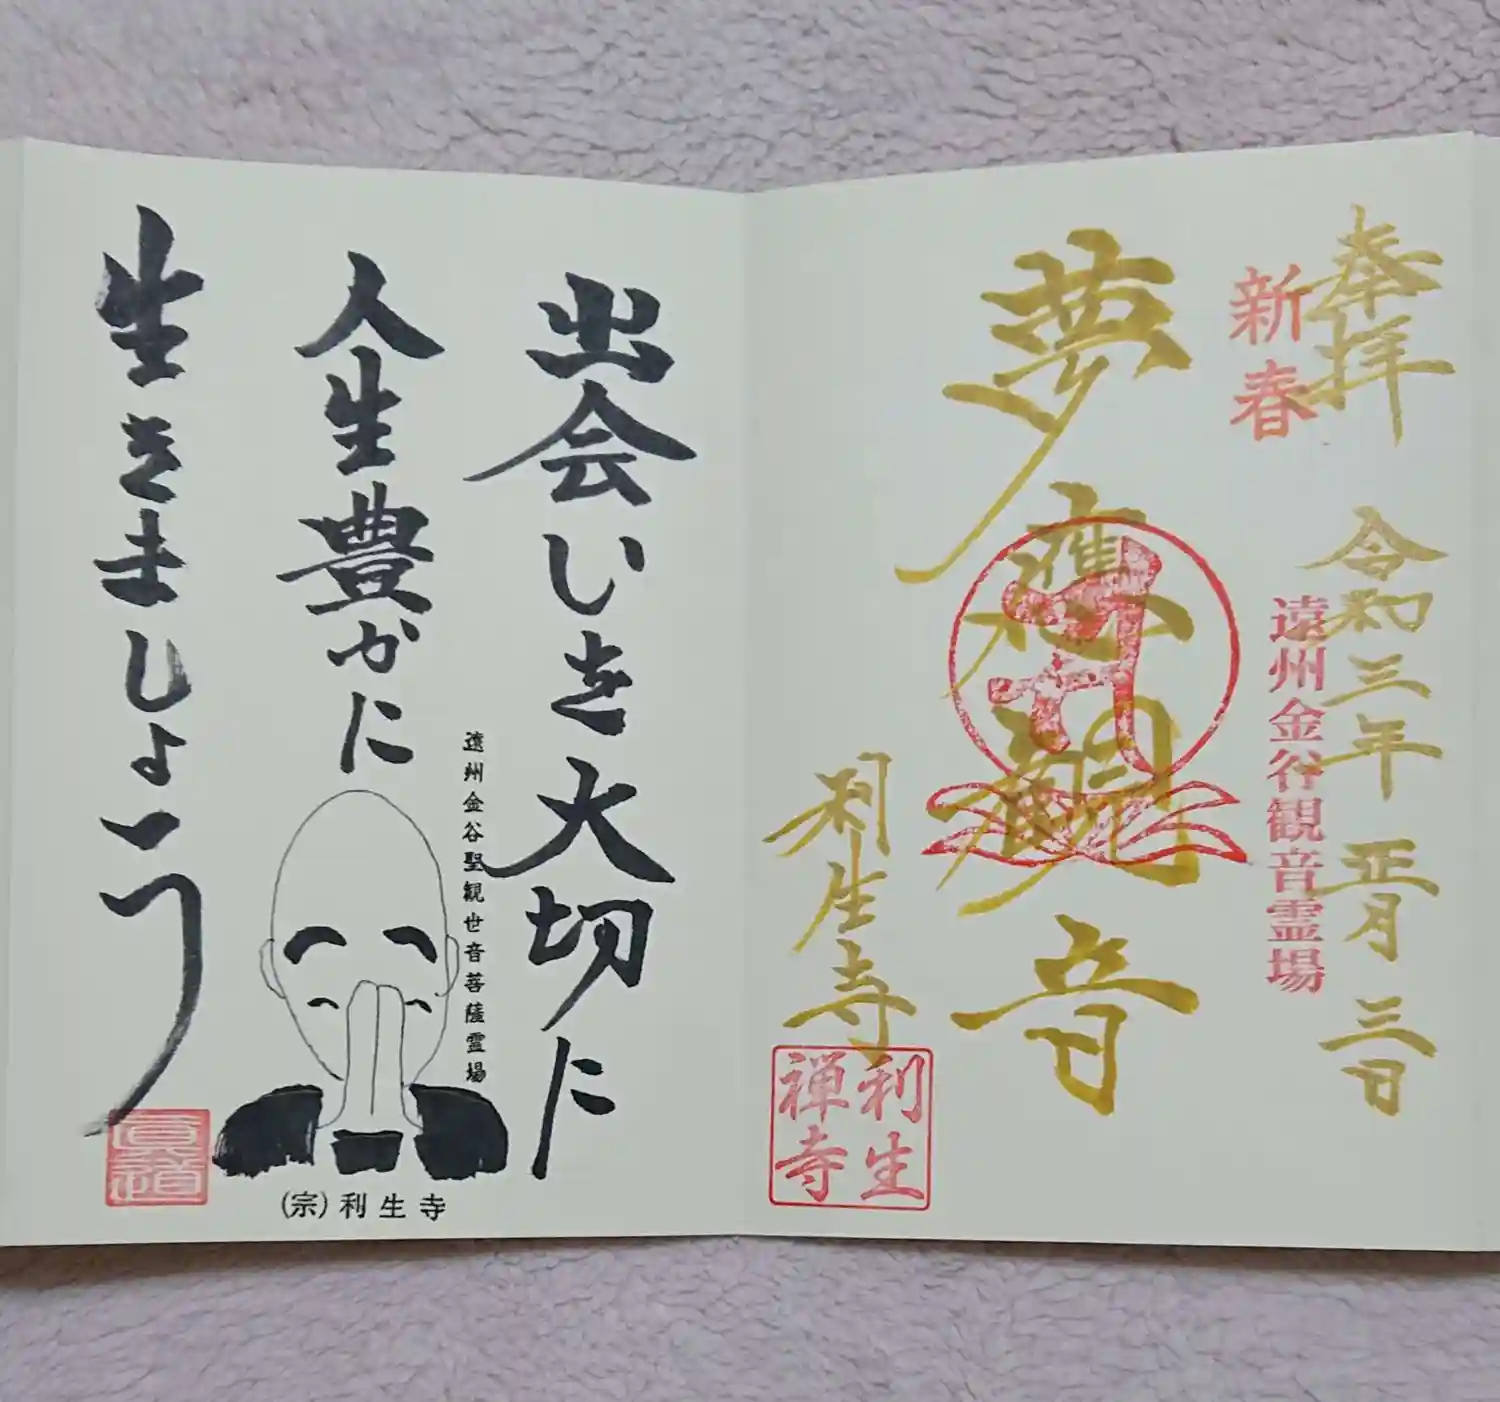 奉拝
新春
令和三年正月三日
遠州金谷観音霊場
夢應観音
利生寺
利生
禅寺
出会いを大切に
人生豊かに
生きましょう
遠州金谷聖観世音菩薩霊場
(宗)利生寺